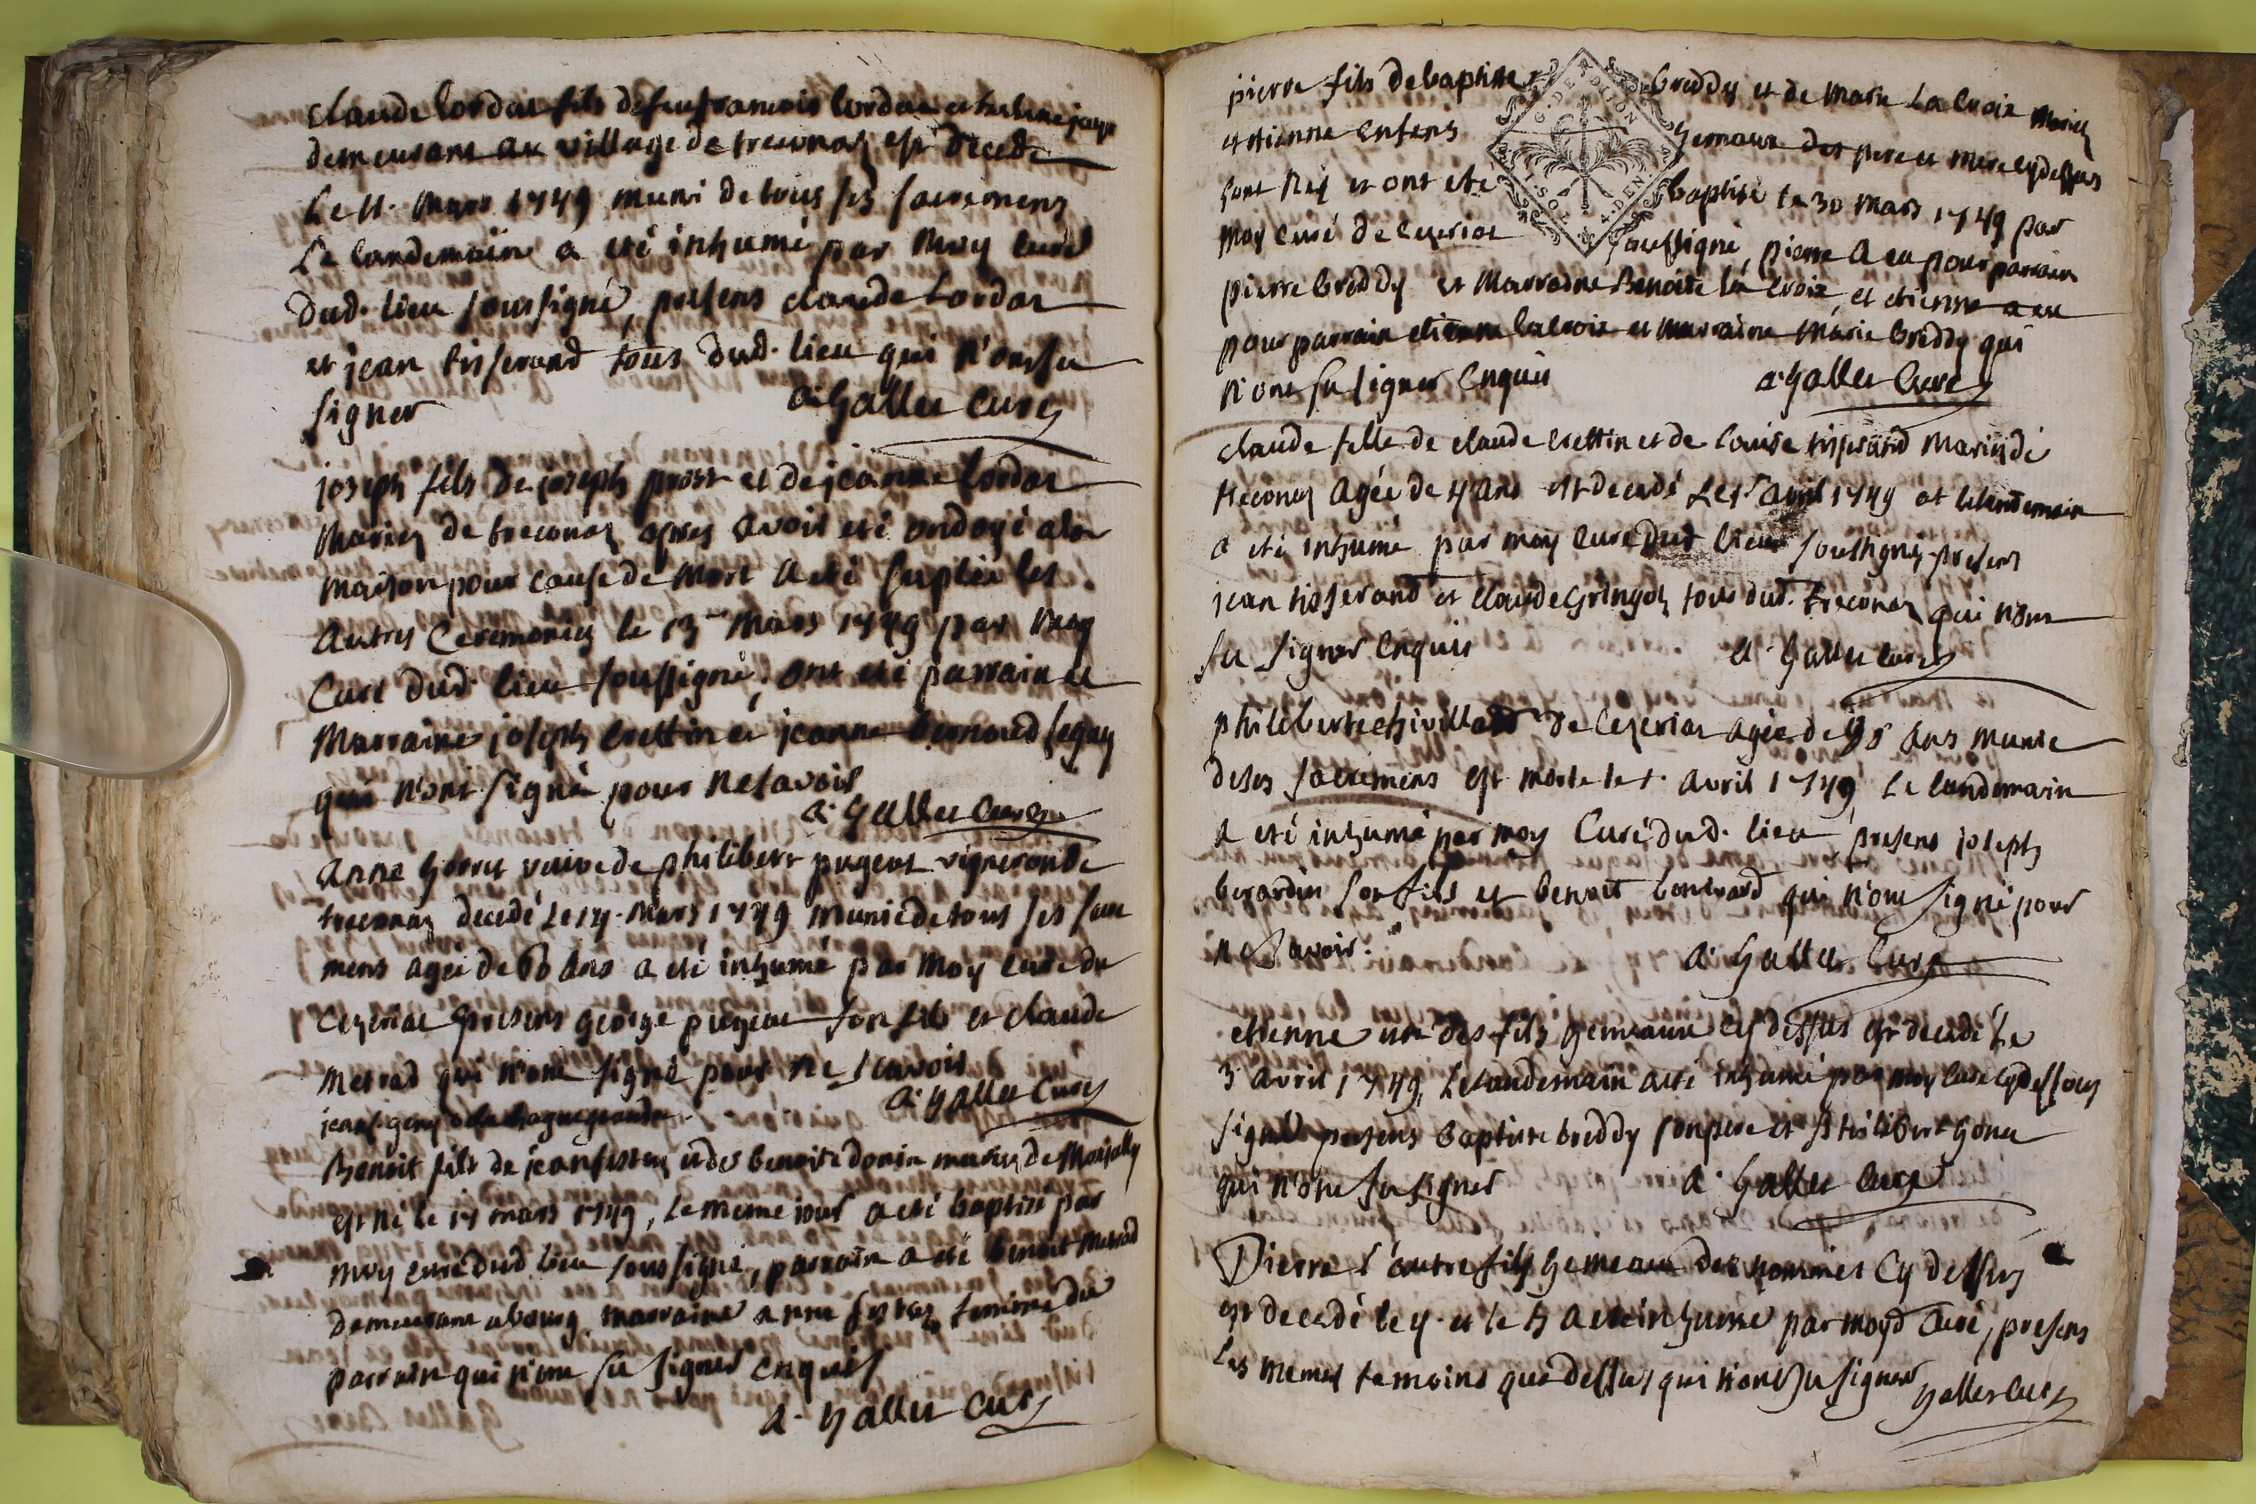 claude lordat fils de feu francois lordat et
demeurant au village de treconas est decede
Le 11. mars 1749 muni de tous ses sacremens
Le landemain a eté inhumé par moy curé
dud. lieu soussigné, presens claude Lordat
et jean tisserand tous dud. lieu qui n'ont su
signer
a. Gallet curé
joseph fils de joseph prost et de jeanne Lordat
mariez de treconas apres avoir eté ondoyé a la
maison pour cause de mort a eté suplée les
autres ceremonies le 13 mars 1749 par moy
Curé dud. lieu soussigné, ont eté parrain et
Marraine joseph Crettin et jeanne bernard
qui n'ont signé pour ne savoir
a. Gallet Curé
Anne veuve de philibert pugeot vigneron de
treconas decedé Le 14. Mars 1749 munie de tous ses sacre
mens agée de 60 ans a eté inhumé par moy curé de
Cezeriat presens george pugeat son fils et claude
metrad qui n'ont signé pour ne scavoir
a. Gallet Curé
Benoit fils de jean et de benoite donin mariez de
est né le 14 mars 1749, Le meme jour a eté baptisé par
moy curé dud lieu soussigné, parrain a eté benoit Metrad
demeurant a bourg marraine anne femme du
parrain qui n'ont su signer enquis
a. Gallet Curé
pierre fils de baptiste breddy et de Marie La Croix Mariez
et etienne enfens gemaux des pere et mere cy dessus
sont Nez et ont eté baptisé le 30 Mars 1749 par
Moy Curé de Cezeriat soussigné, pierre a eu pour parrain
pierre breddy et Marraine Benoite la Croix, et etienne a eu
pour parrain etienne lacroix et marraine Marie breddy qui
n'ont su signer Enquis
a. Gallet Curé
G. DE DIJON
1. SOL 4. DEN
claude fille de claude Crettin et de Louise tisserand Mariez de
treconas Agée de 4 Ans est decedé Le 1er avril 1749 et le landemain
a eté inhumé par moy curé dud lieu soussigné presens
jean tisserand et claude tous dud. treconas qui n'ont
su signer Enquis
a. Gallet Curé
philiberte chivillard de Cezeriat agée de ans munie
de ses sacremens est morte le 1. avril 1749, Le landemain
a eté inhumé par moy Curé dud. lieu, presens joseph
berardin son fils et benoit qui n'ont signé pour
ne savoir.
a. Gallet Curé
etienne un des fils gemeaux cy dessus est decedé Le
3 avril 1749, Le landemain a eté inhumé par moy curé cy dessous
signé presens baptiste breddy son pere et philibert
qui n'ont su signer
a. Gallet Curé
Pierre l'autre fils gemeaux des nommés Cy dessus
est decedé le 4. et le 5 a eté inhumé par moyd Curé, presens
Les memes temoins que dessus qui n'ont su signer
Gallet Curé